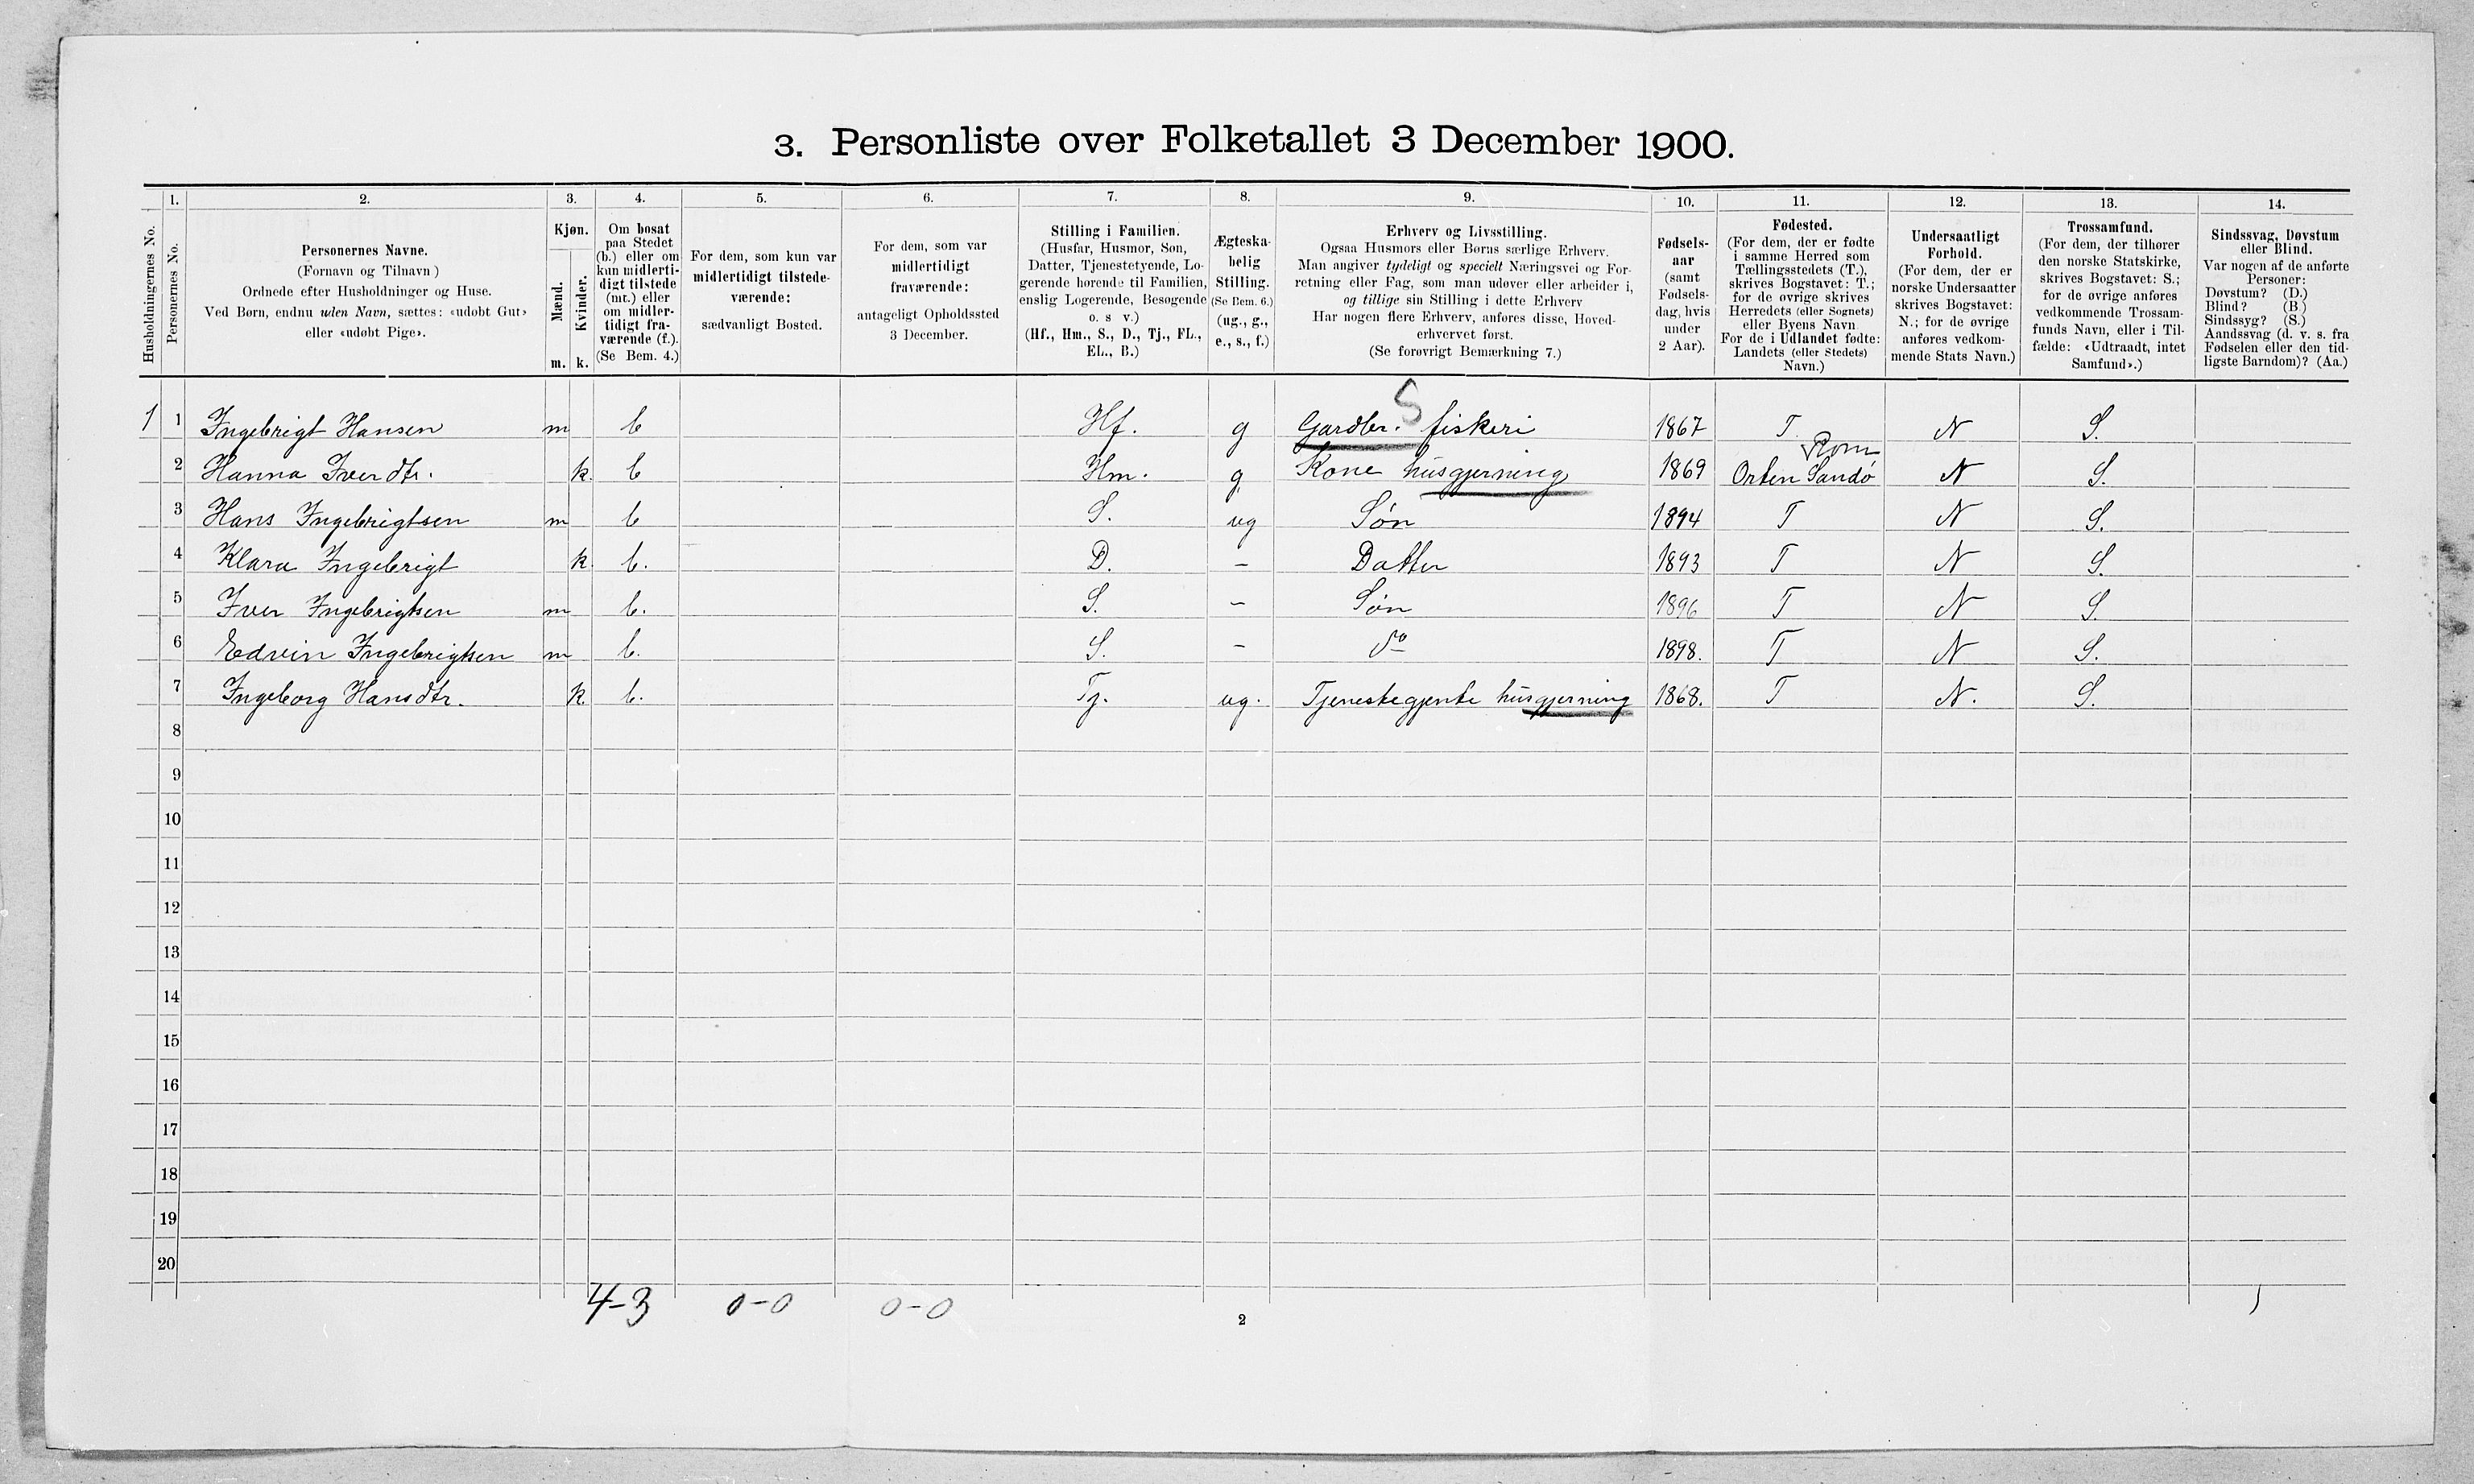 3. Personliste over Folketallet 3 December 1900.
Husholdningernes No.
1.
Personernes No.
2.
Personernes Navne.
(Fornavn og Tilnavn)
Ordnede efter Husholdninger og Huse.
Ved Børn, endnu uden Navn, sættes: «udøbt Gut»
eller «udøbt Pige».
3.
Kjøn.
Mænd. Kvinder.
m. k.
4.
Om bosat
paa Stedet
(b.) eller om
kun midlerti-
digt tilstede
(mt.) eller
om midler-
tidigt fra-
værende (f.).
(Se Bem. 4.)
5.
For dem, som kun var
midlertidigt tilstede-
værende:
sædvanligt Bosted.
6.
For dem, som var
midlertidigt
fraværende:
antageligt Opholdssted
3 December.
7.
Stilling i Familien.
(Husfar, Husmor, Søn,
Datter, Tjenestetyende, Lo-
gerende hørende til Familien,
enslig Logerende, Besøgende
o. s v.)
(Hf., Hm., S., D., Tj., FL.,
EL., B.)
8.
Ægteska-
belig
Stilling.
(Se Bem. 6.)
(ug., g.,
e., s., f.)
9.
Erhverv og Livsstilling.
Ogsaa Husmors eller Børns særlige Erhverv.
Man angiver tydeligt og specielt Næringsvei og For-
retning eller Fag, som man udøver eller arbeider i,
og tillige sin Stilling i dette Erhverv
Har nogen flere Erhverv, anføres disse, Hoved-
erhvervet først.
(Se forøvrigt Bemærkning 7.)
10.
Fødsels-
aar
(samt
Fødsels-
dag, hvis
under
2 Aar).
11.
Fødested.
(For dem, der er fødte
i samme Herred som
Tællingsstedets (T.),
skrives Bogstavet: T.;
for de øvrige skrives
Herredets (eller Sognets)
eller Byens Navn.
For de i Udlandet fødte:
Landets (eller Stedets)
Navn.)
12.
Undersaatligt
Forhold.
(For dem, der er
norske Undersaatter
skrives Bogstavet:
N.; for de øvrige
anføres vedkom-
mende Stats Navn.)
13.
Trossamfund.
(For dem, der tilhører
den norske Statskirke,
skrives Bogstavet: S.;
for de øvrige anføres
vedkommende Trossam-
funds Navn, eller i Til-
fælde: «Udtraadt, intet
Samfund».)
14.
Sindssvag, Døvstum
eller Blind.
Var nogen af de anførte
Personer:
Døvstum? (D.)
Blind? (B)
Sindssyg? (S.)
Aandssvag (d. v. s. fra
Fødselen eller den tid-
ligste Barndom)? (Aa.)
S
1 1 Ingebrigt Hansen m b Hf. g Gardbr. fiskeri 1867 T. N S.
Rom
2 Hanna Iverdtr. k. b Hm. g Kone husgjerning 1869 Orten Sandø N S.
3 Hans Ingebrigtsen m b S. ug Søn 1894 T N S.
4 Klara Ingebrigt k. b. D. – Datter 1893 T N S.
5 Iver Ingebrigtsen m b. S. – Søn 1896 T N S.
6 Edvin Ingebrigtsen m b. S. – do 1898. T N S.
7 Ingeborg Hansdtr. k. b. Tj. ug. Tjenestegjente husgjerning 1868. T N. S.
8
9
10
11
12
13
14
15
16
17
18
19
20
4-3 0-0 0-0
2